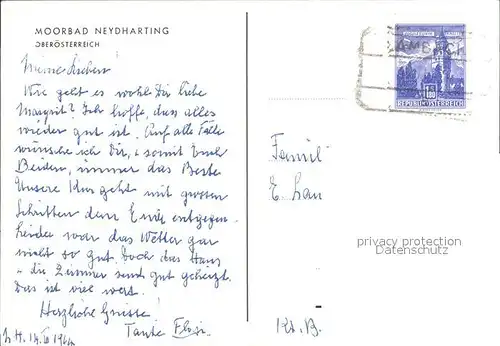 MOORBAD NEYDHARTING
OBERÖSTERREICH
Meine Lieben!
Wie geht es wohl Dir liebe
Margrit? Ich hoffe, dass alles
wieder gut ist. Auf alle Fälle
wünsche ich Dir, & somit Euch
Beiden, immer das Beste.
Unsere Kur geht mit grossen
Schritten dem Ende entgegen.
Leider war das Wetter gar
nicht so gut. Doch das Haus
& die Zimmer sind gut geheizt.
Das ist viel wert.
Herzliche Grüsse!
Tante
REPUBLIK ÖSTERREICH
Famil
E.
privacy protection
Datenschutz